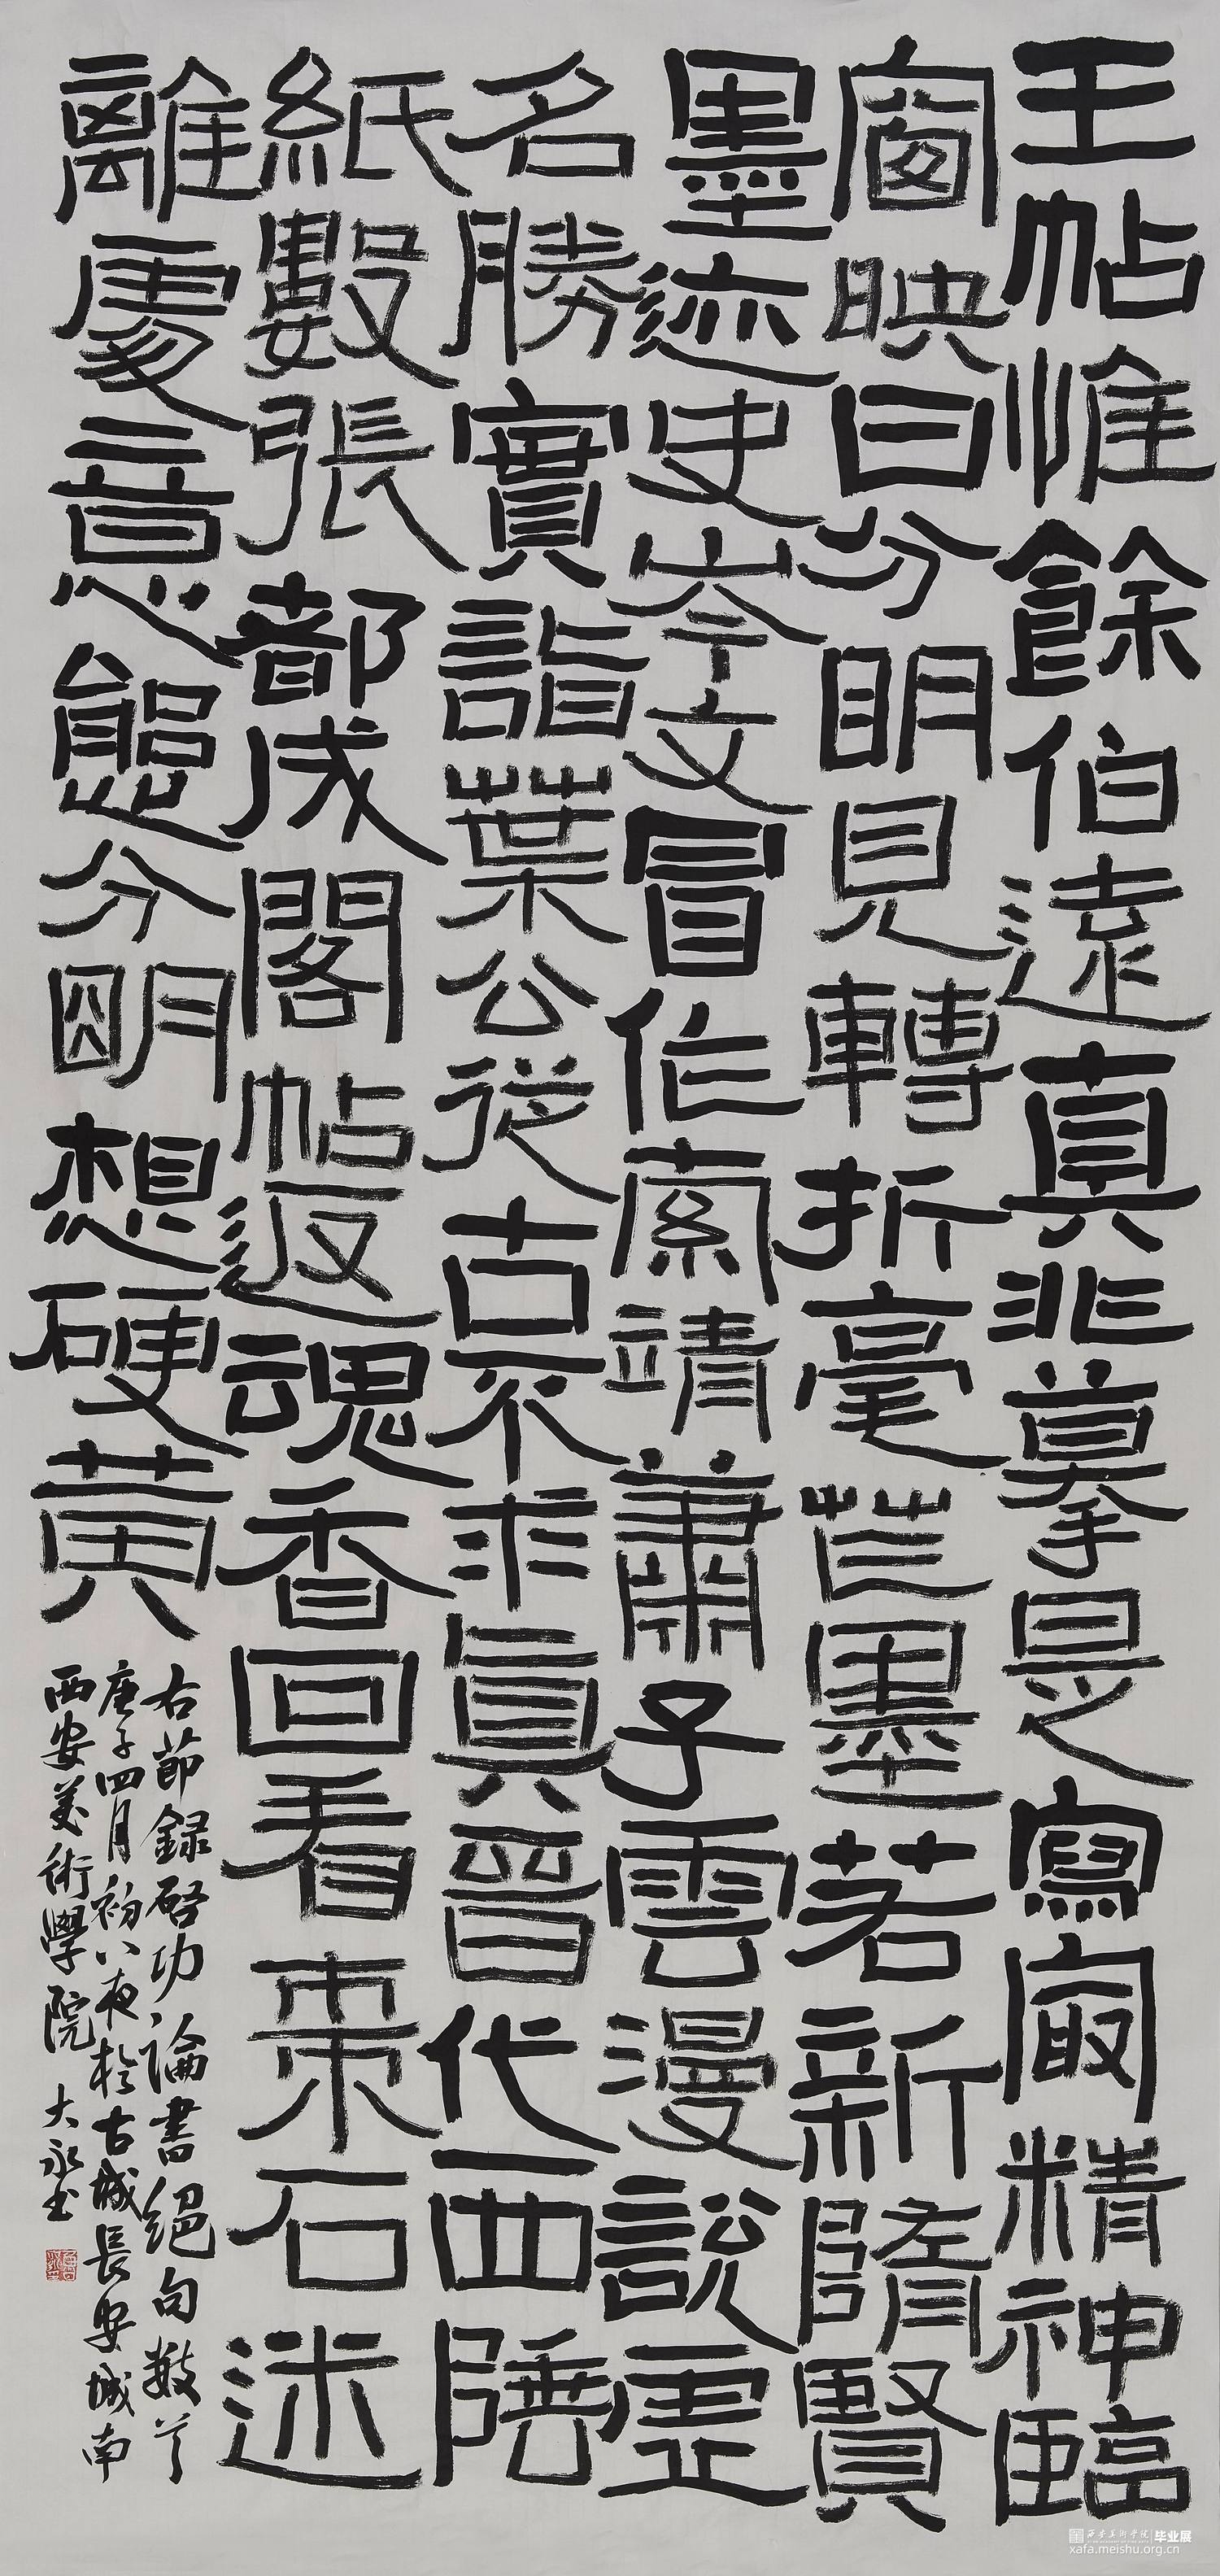 王帖惟餘伯遠真非摹是寫最精神臨
窗映日分明見轉折毫芒墨若新隋賢
墨迹史岑文冒作索靖蕭子雲漫說虛
名勝實詣葉公從古不求真晉代西陲
紙數張都成閣帖返魂香回看棗石迷
離處意態分明想硬黃
右節錄啓功論書絕句數首
庚子四月初八夜於古城長安城南
西安美術學院 大永書
西安美術學院 毕业展
xafa.meishu.org.cn